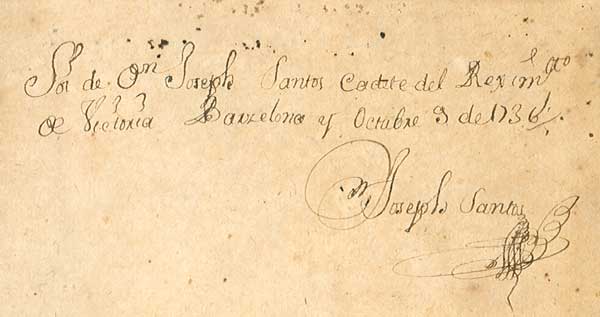 Soi de Dn Joseph Santos Cadete del Reximto
de Victoria Barzelona y Octubre 9 de 1736.
Joseph Santos